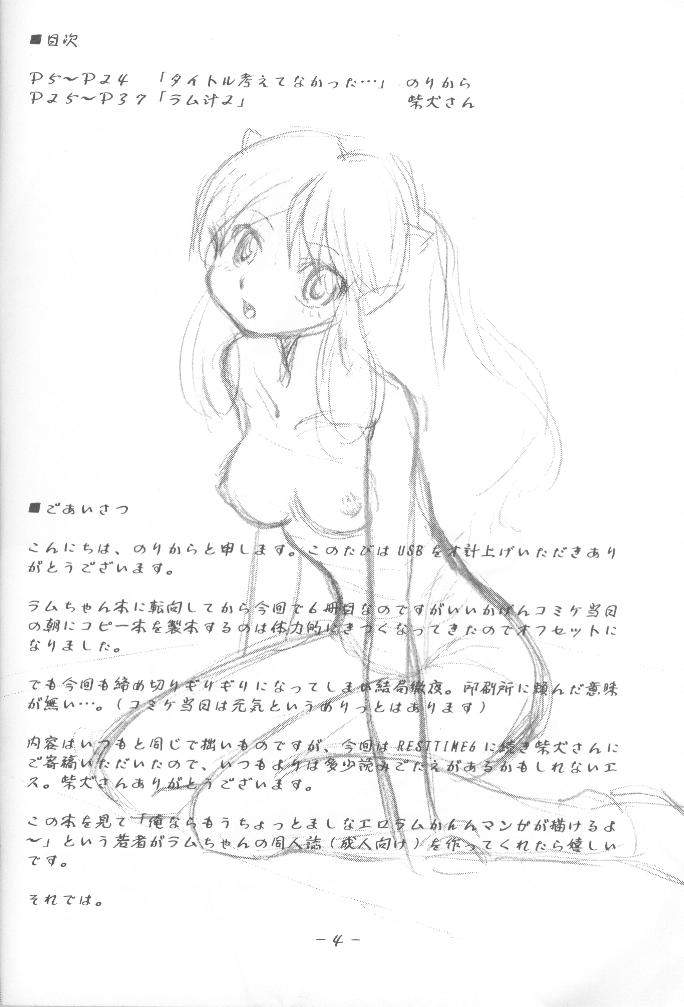 ■目次
P5～P24　「タイトル考えてなかった…」　のりから
P25～P37「ラム汁2」　柴犬さん
■ごあいさつ
こんにちは、のりからと申します。このたびはUSBをお計上げいただきあり
がとうございます。
ラムちゃん本に転向してから今回で6冊目なのですがいいかげんコミケ当日
の朝にコピー本を製本するのは体力的にきつくなってきたのでオフセットに
なりました。
でも今回も締め切りぎりぎりになってしまい結局徹夜。印刷所に頼んだ意味
が無い…。（コミケ当日は元気というめりっとはあります）
内容はいつもと同じで拙いものですが、今回はRESTTIME6に続き柴犬さんに
ご寄稿いただいたので、いつもよりは多少読みごたえがあるかもしれないエ
ス。柴犬さんありがとうございます。
この本を見て「俺ならもうちょっとましなエロラムかんんマンガが描けるよ
～」という若者がラムちゃんの同人誌（成人向け）を作ってくれたら嬉しい
です。
それでは。
- 4 -